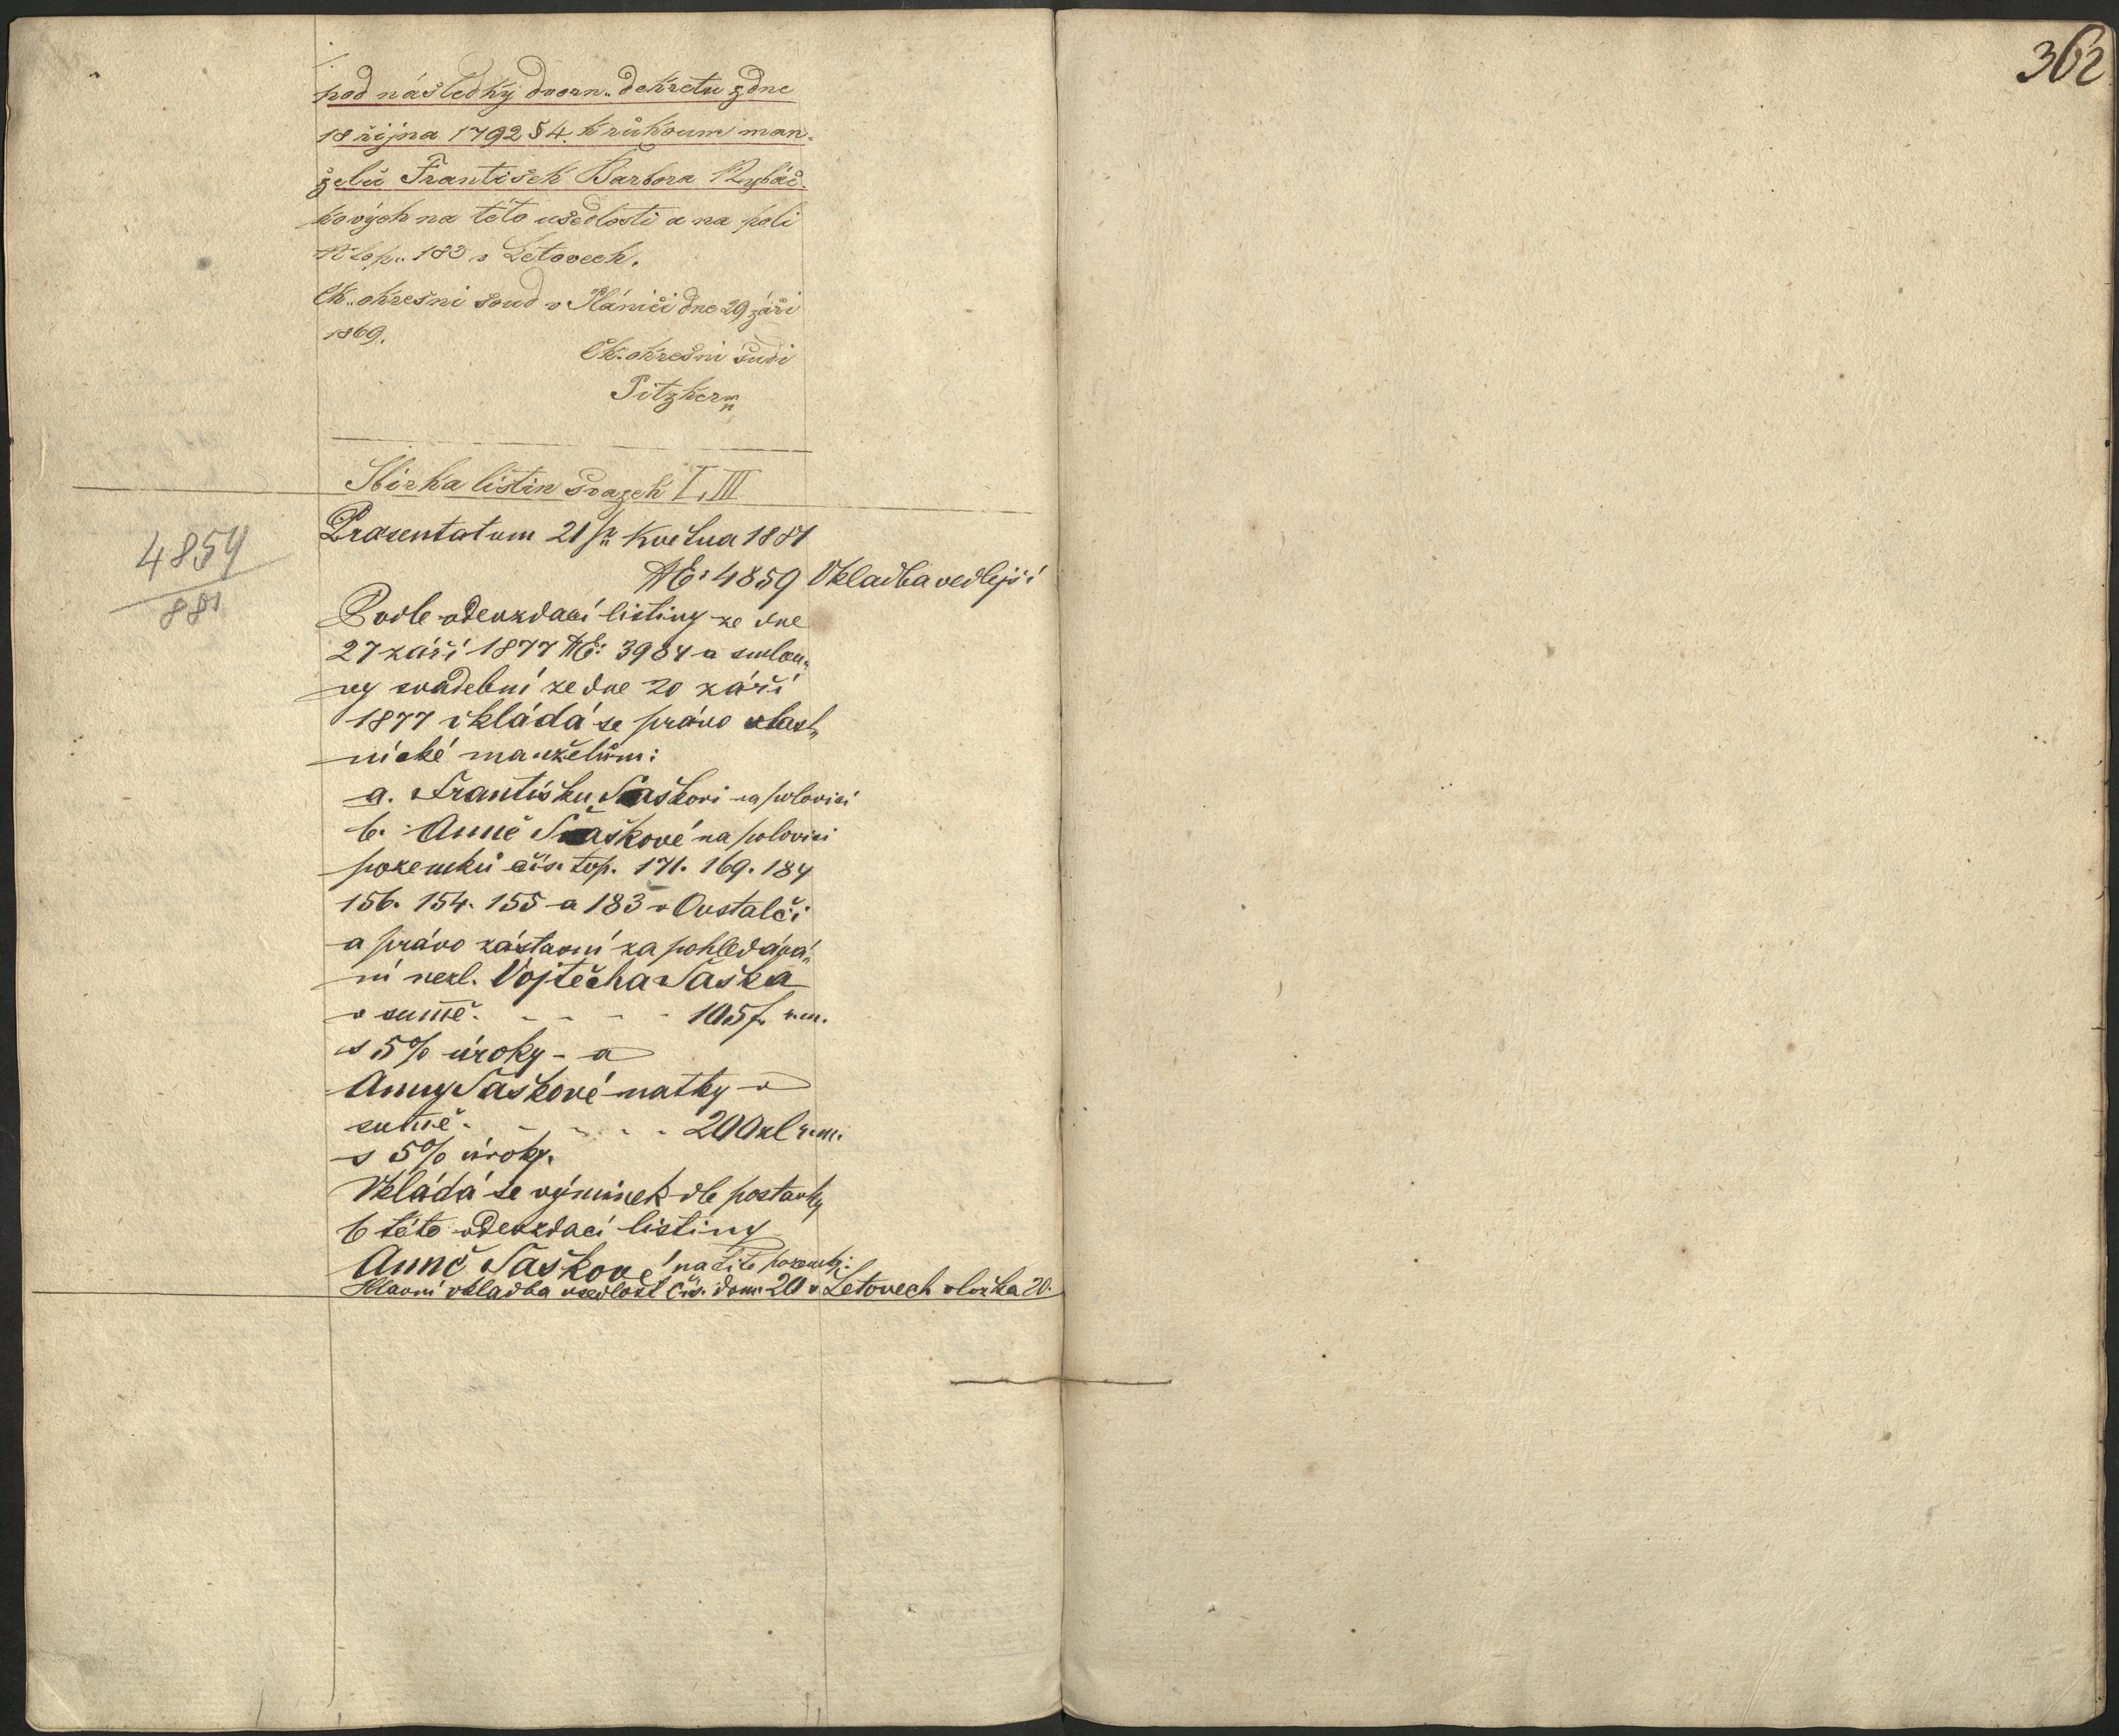 362
pod následky dvorn. dekretu z dne
18 října 1792 § 4. k rukoum man-
želů František Barbora Rybáč-
kových na této usedlosti a na poli
N top. 183 v Letovech.
Ck. okresní soud v Plánici dne 29 září
1869.
Ck. okresní sudí
Pitzker
Sbírka listin svazek I, III
4859
881
Prasentatum 21 května 1881
NE: 4859 Vkladba vedlejší
Podle odevzdací listiny ze dne
27 září 1877 NE: 3984 a smlou-
vy svadební ze dne 20 září
1877 vkládá se právo vlast-
nické manželům:
a. Františku Šaškovi na polovici
b. Anně Šaškové na polovici
pozemků čís. top. 171. 169. 184
156. 154. 155 a 183 v Ovstalči
a právo zástavní za pohledává-
ní nezl. Vojtěcha Šaška
v sumě. - - - - 105 f. r.m.
s 5% úroky - a
Anny Šaškové matky v
sumě. - - - - 200 zl r.m.
s 5% úroky.
Vkládá se výminek dle postavky
6 této odevzdací listiny
Anně Šaškové na tito pozemky.
Hlavní vkladba usedlost čís. dom. 20 v Letovech vložka 20.